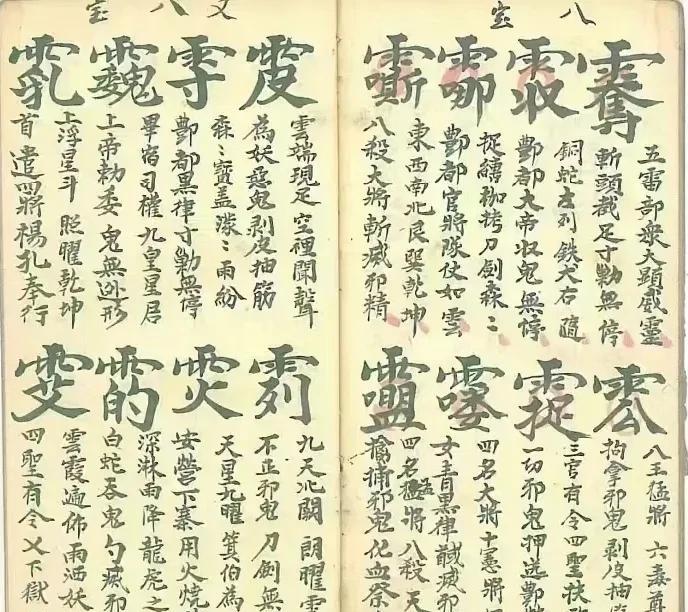 八宝
五雷部衆大顕威靈
斬頭截足寸勦無停
銅蛇左列鉄犬右随
酆都大帝収鬼無停
捉縛枷拷刀劍森〻
酆都官將隊仗如雲
東西南北艮巽乾坤
八殺大將斬滅邪精
八王猛將六毒
拘拿邪鬼剥皮抽
三官有令四聖扶
一切邪鬼押送酆
四名大將十憲將
女青黑律馘滅邪
四名猛將八殺天
擒捕邪鬼化血祭
乂八宝
雲端現足空裡聞聲
為妖惡鬼剥皮抽筋
森〻寳盖濛〻雨紛
酆都黒律寸勦無停
畢宿司權九皇星君
上帝勅委鬼無逃形
上浮星斗照曜乾坤
首遣四將楊孔奉行
九天北闕朗曜雲
不正邪鬼刀劍無
天星九曜箕伯為
安營下寨用火燒
深淋雨降龍虎之
白蛇吞鬼勺滅邪
雲霞遍佈雨洒妖
四聖有令乂下獄